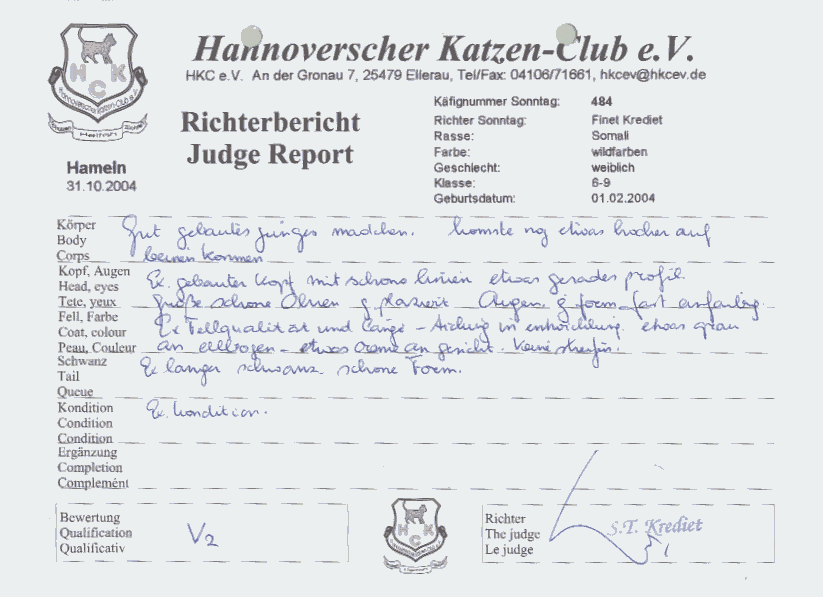 Hannoverscher Katzen-Club e.V.
HKC e.V. An der Gronau 7, 25479 Ellerau, Tel/Fax: 04106/71661, hkcev@hkcev.de
HKC
Hannoverscher Katzen-Club e.V.
Hameln
31.10.2004
Richterbericht
Judge Report
Käfignummer Sonntag: 484
Richter Sonntag: Finet Krediet
Rasse: Somali
Farbe: wildfarben
Geschlecht: weiblich
Klasse: 6-9
Geburtsdatum: 01.02.2004
Körper
Body
Corps
Gut gebautes junges madchen. komste nog etwas hocher auf
beinen kommen
Kopf, Augen
Head, eyes
Tete, yeux
Ex. gebauter Kopf mit schone linien etwas gerades profil
große schone Ohren g plaziert Augen g form fast
Fell, Farbe
Coat, colour
Peau, Couleur
Ex Fellqualität und Länge - in entwicklung. etwas grau
an ellbogen - etwas creme an gesicht. Keine streifen.
Schwanz
Tail
Queue
Ex langer schwanz. schone Form.
Kondition
Condition
Condition
Ex. kondition.
Ergänzung
Completion
Complemént
Bewertung
Qualification
Qualificativ
V2
HKC
Richter
The judge
Le judge
S.T. Krediet